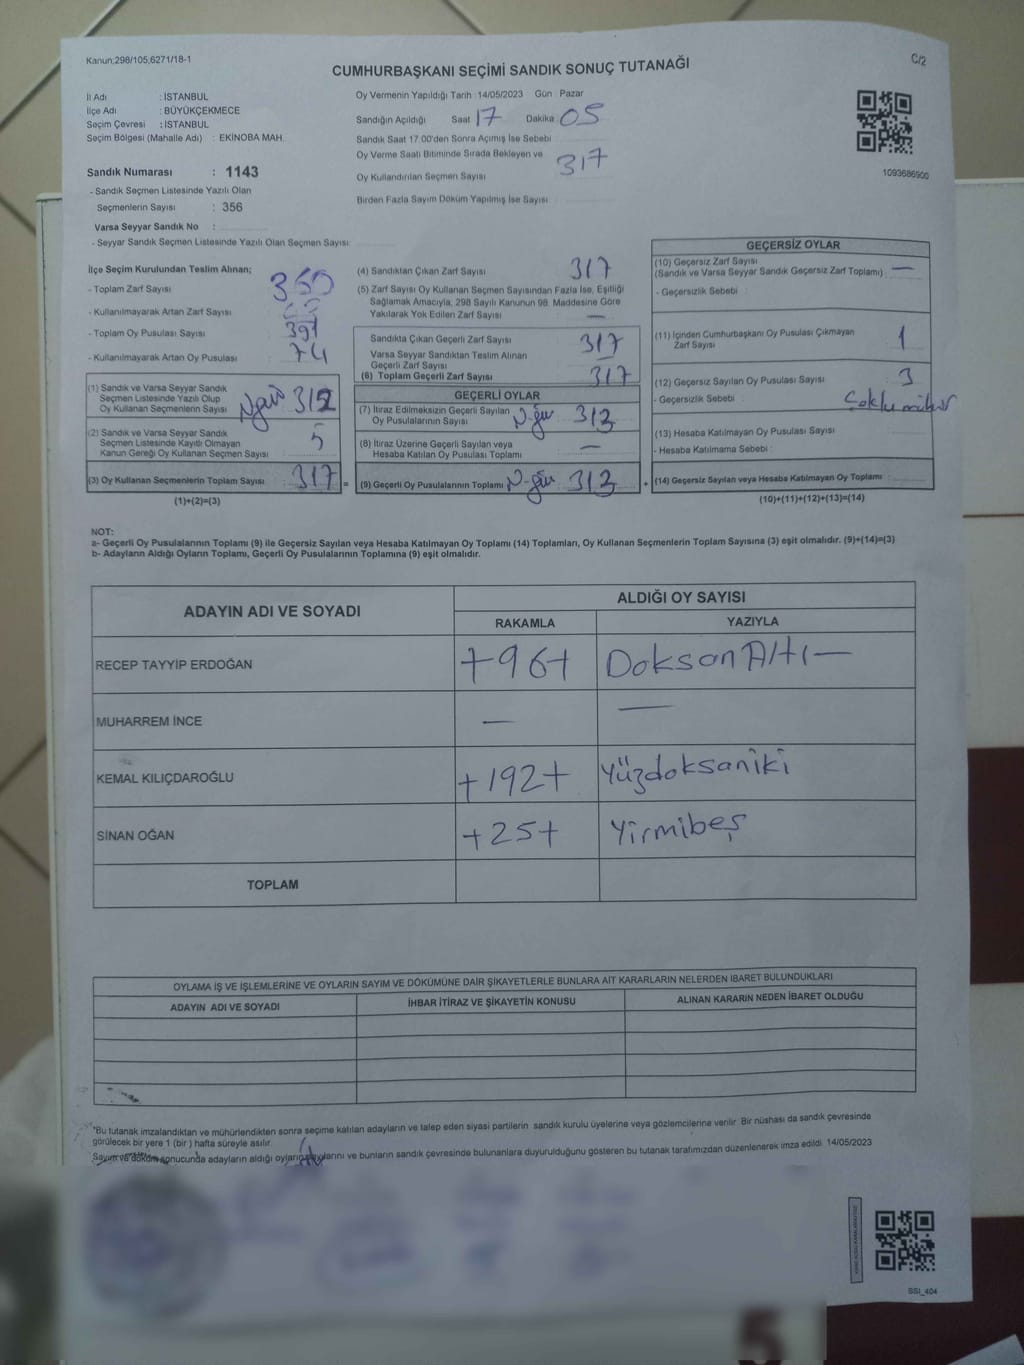 Kanun:298/105,6271/18-1
C/2
CUMHURBAŞKANI SEÇİMİ SANDIK SONUÇ TUTANAĞI
İl Adı : İSTANBUL
İlçe Adı : BÜYÜKÇEKMECE
Seçim Çevresi : İSTANBUL
Seçim Bölgesi (Mahalle Adı) : EKİNOBA MAH.
Sandık Numarası : 1143
- Sandık Seçmen Listesinde Yazılı Olan
Seçmenlerin Sayısı : 356
Varsa Seyyar Sandık No :
- Seyyar Sandık Seçmen Listesinde Yazılı Olan Seçmen Sayısı
Oy Vermenin Yapıldığı Tarih : 14/05/2023 Gün : Pazar
Sandığın Açıldığı Saat 17 Dakika 05
Sandık Saat 17.00'den Sonra Açımış İse Sebebi
Oy Verme Saati Bitiminde Sırada Bekleyen ve
Oy Kullandırılan Seçmen Sayısı 317
Birden Fazla Sayım Döküm Yapılmış İse Sayısı
1093686900
İlçe Seçim Kurulundan Teslim Alınan;
- Toplam Zarf Sayısı 360
- Kullanılmayarak Artan Zarf Sayısı
- Toplam Oy Pusulası Sayısı 391
- Kullanılmayarak Artan Oy Pusulası 74
(1) Sandık ve Varsa Seyyar Sandık
Seçmen Listesinde Yazılı Olup
Oy Kullanan Seçmenlerin Sayısı 312
(2) Sandık ve Varsa Seyyar Sandık
Seçmen Listesinde Kayıtlı Olmayan
Kanun Gereği Oy Kullanan Seçmen Sayısı 5
(3) Oy Kullanan Seçmenlerin Toplam Sayısı 317
(1)+(2)=(3)
(4) Sandıktan Çıkan Zarf Sayısı 317
(5) Zarf Sayısı Oy Kullanan Seçmen Sayısından Fazla İse, Eşitliği
Sağlamak Amacıyla, 298 Sayılı Kanunun 98. Maddesine Göre
Yakılarak Yok Edilen Zarf Sayısı —
Sandıkta Çıkan Geçerli Zarf Sayısı 317
Varsa Seyyar Sandıktan Teslim Alınan
Geçerli Zarf Sayısı —
(6) Toplam Geçerli Zarf Sayısı 317
GEÇERLİ OYLAR
(7) İtiraz Edilmeksizin Geçerli Sayılan
Oy Pusulalarının Sayısı 313
(8) İtiraz Üzerine Geçerli Sayılan veya
Hesaba Katılan Oy Pusulası Toplamı —
(9) Geçerli Oy Pusulalarının Toplamı 313
GEÇERSİZ OYLAR
(10) Geçersiz Zarf Sayısı
(Sandık ve Varsa Seyyar Sandık Geçersiz Zarf Toplamı) —
- Geçersizlik Sebebi :
(11) İçinden Cumhurbaşkanı Oy Pusulası Çıkmayan
Zarf Sayısı 1
(12) Geçersiz Sayılan Oy Pusulası Sayısı 3
- Geçersizlik Sebebi :
(13) Hesaba Katılmayan Oy Pusulası Sayısı
- Hesaba Katılmama Sebebi :
(14) Geçersiz Sayılan veya Hesaba Katılmayan Oy Toplamı
(10)+(11)+(12)+(13)=(14)
NOT:
a- Geçerli Oy Pusulalarının Toplamı (9) ile Geçersiz Sayılan veya Hesaba Katılmayan Oy Toplamı (14) Toplamları, Oy Kullanan Seçmenlerin Toplam Sayısına (3) eşit olmalıdır. (9)+(14)=(3)
b- Adayların Aldığı Oyların Toplamı, Geçerli Oy Pusulalarının Toplamına (9) eşit olmalıdır.
ADAYIN ADI VE SOYADI
ALDIĞI OY SAYISI
RAKAMLA YAZIYLA
RECEP TAYYİP ERDOĞAN +96+ Doksan Altı —
MUHARREM İNCE — —
KEMAL KILIÇDAROĞLU +192+ Yüzdoksaniki
SİNAN OĞAN +25+ Yirmibeş
TOPLAM
OYLAMA İŞ VE İŞLEMLERİNE VE OYLARIN SAYIM VE DÖKÜMÜNE DAİR ŞİKAYETLERLE BUNLARA AİT KARARLARIN NELERDEN İBARET BULUNDUKLARI
ADAYIN ADI VE SOYADI İHBAR İTİRAZ VE ŞİKAYETİN KONUSU ALINAN KARARIN NEDEN İBARET OLDUĞU
*Bu tutanak imzalandıktan ve mühürlendikten sonra seçime katılan adayların ve talep eden siyasi partilerin sandık kurulu üyelerine veya gözlemcilerine verilir. Bir nüshası da sandık çevresinde
görülecek bir yere 1 (bir) hafta süreyle asılır.
Sayım ve döküm sonucunda adayların aldığı oyların sayılarını ve bunların sandık çevresinde bulunanlara duyurulduğunu gösteren bu tutanak tarafımızdan düzenlenerek imza edildi. 14/05/2023
SSI_404
5